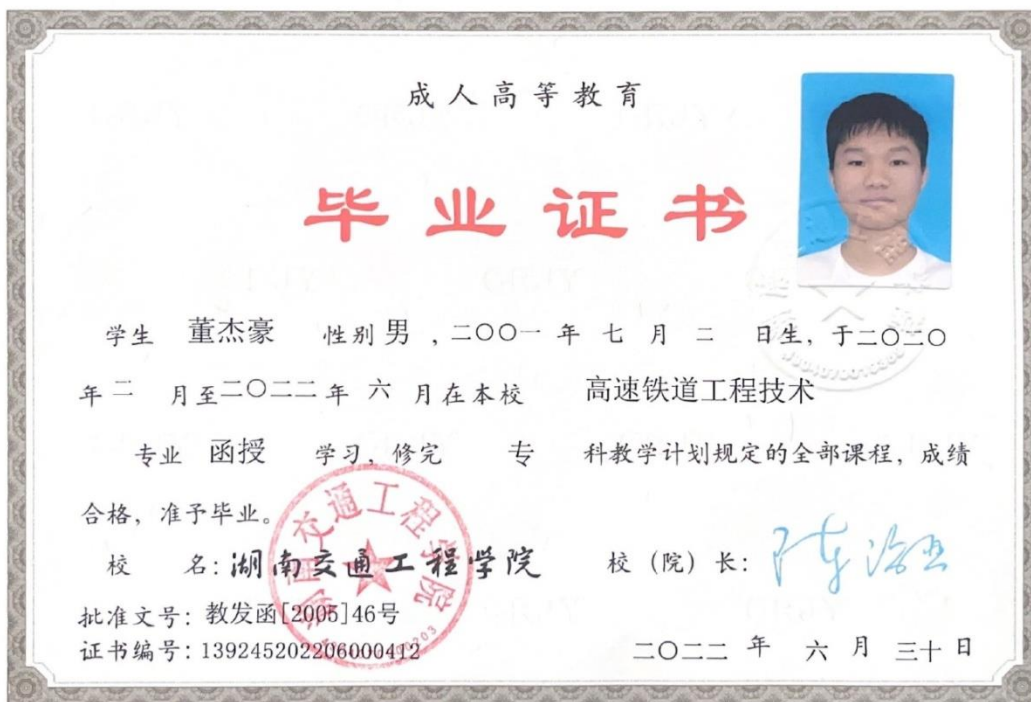 成人高等教育
毕业证书
学生 董杰豪 性别 男 ,二〇〇一 年 七 月 二 日生, 于二〇二〇
年 二 月至二〇二二年 六 月在本校 高速铁道工程技术
专业 函授 学习, 修完 专 科教学计划规定的全部课程, 成绩
合格, 准予毕业。
校 名: 湖南交通工程学院 校 (院) 长:
湖南交通工程学院
批准文号: 教发函[2005]46号
证书编号: 139245202206000412 二〇二二 年 六 月 三十 日